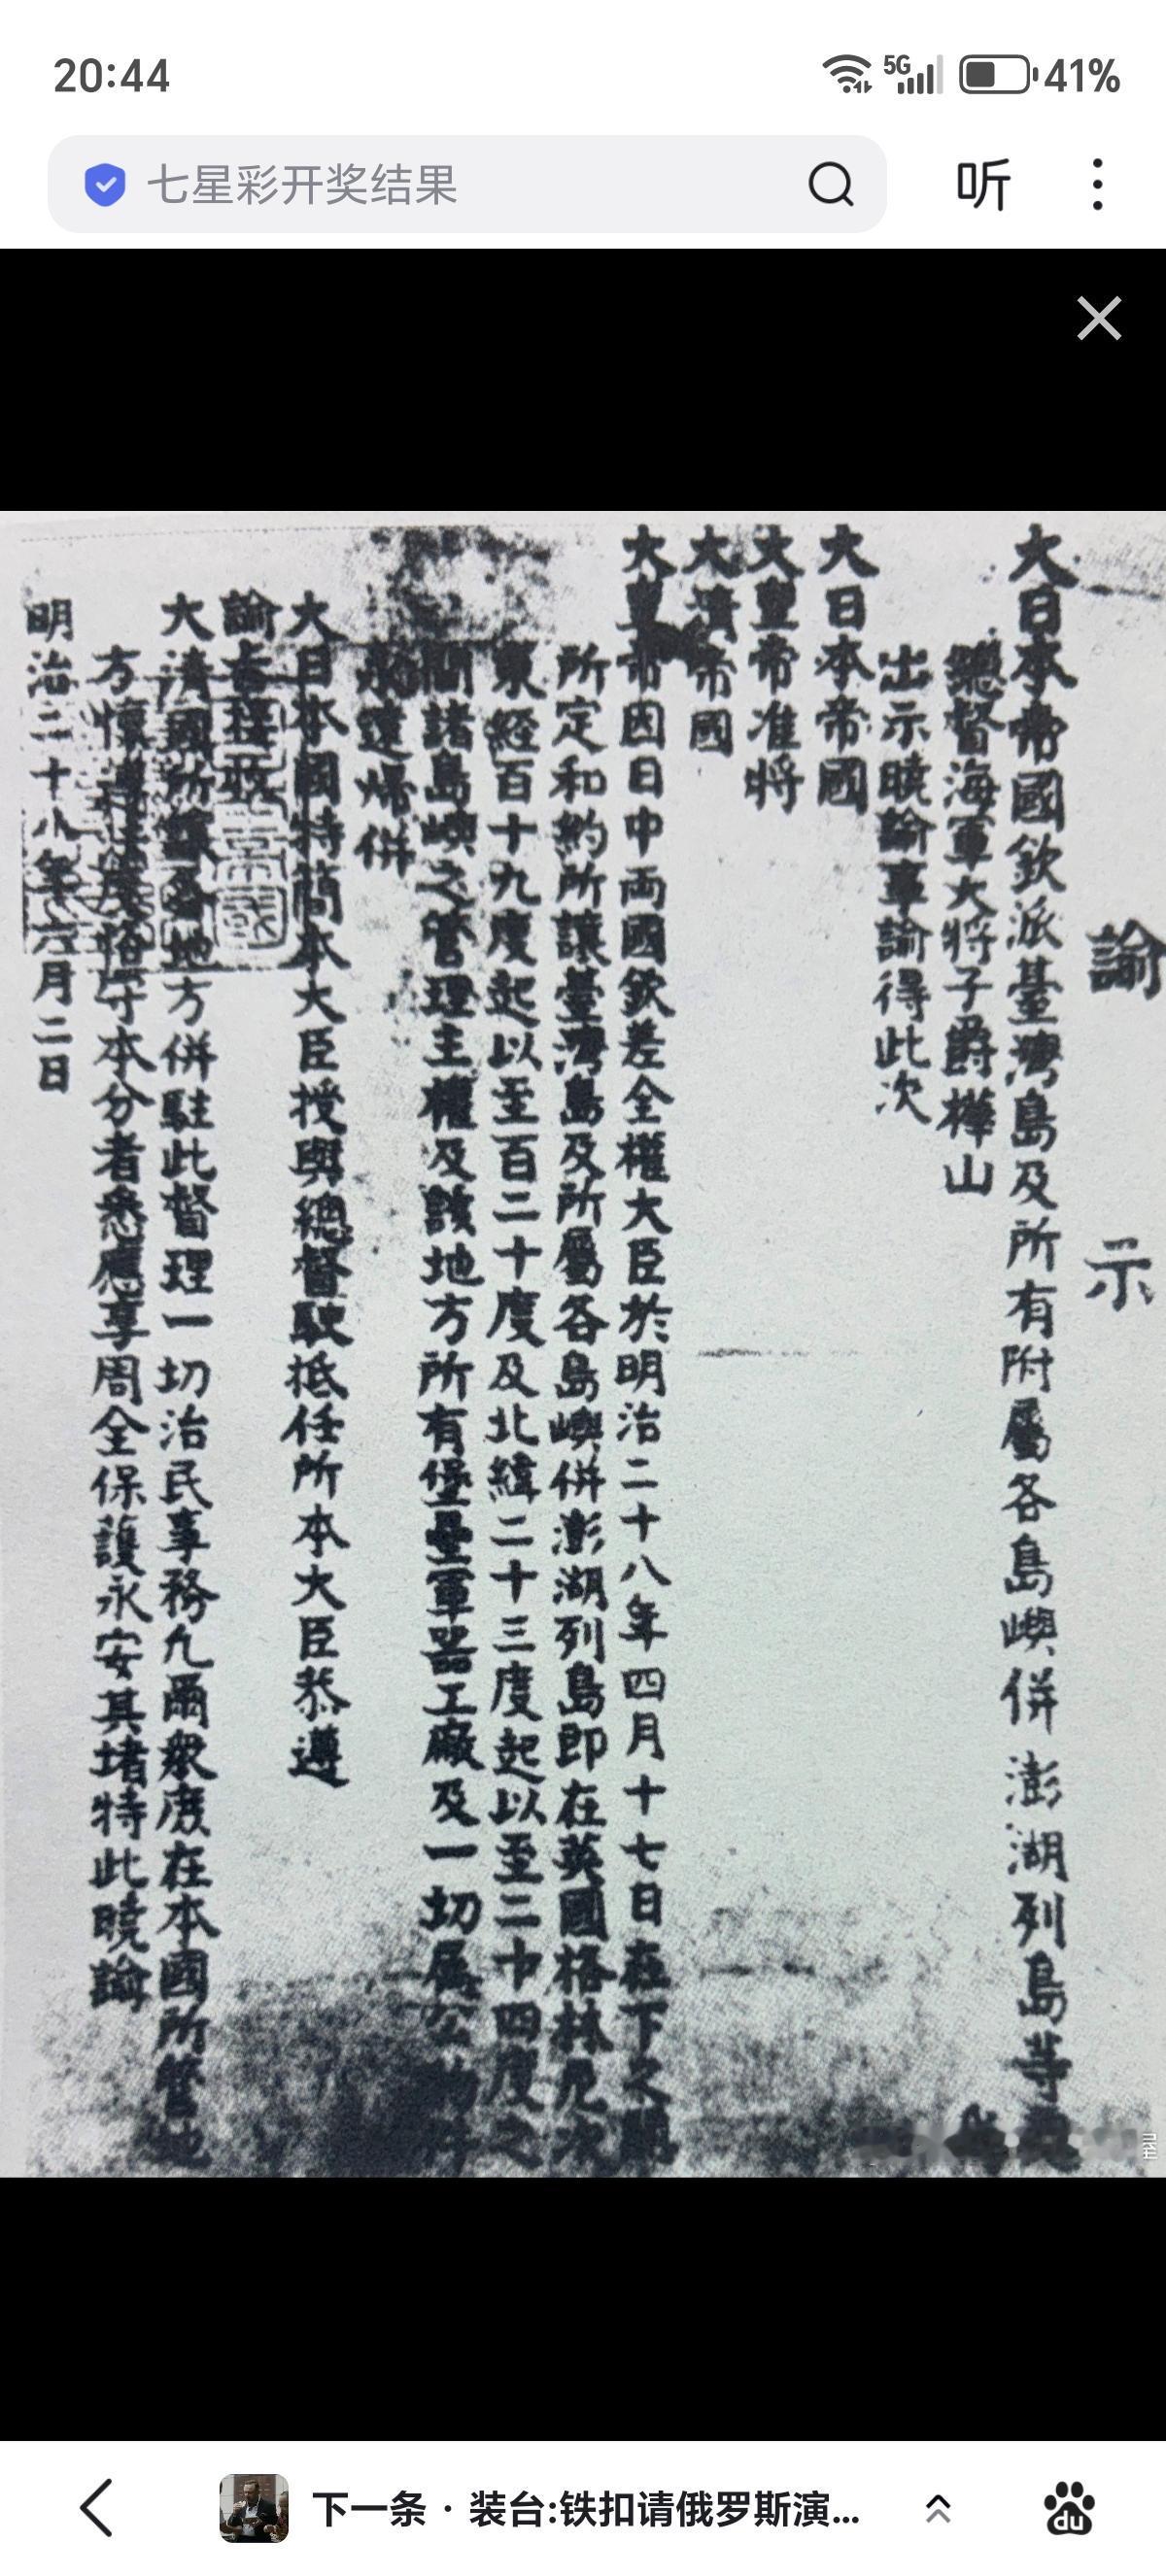 20:44
5G
41%
七星彩开奖结果
听
諭示
大日本帝國欽派臺灣島及所有附屬各島嶼併澎湖列島等
總督海軍大將子爵樺山
出示曉諭事諭得此次
大日本帝國
大皇帝准將
大清帝國
大皇帝因日中両國欽差全權大臣於明治二十八年四月十七日在下之關
所定和約所讓臺灣島及所屬各島嶼併澎湖列島即在英國格林尼次
東經百十九度起以至百二十度及北緯二十三度起以至二十四度之
間諸島嶼之管理主權及該地方所有堡壘軍器工廠及一切屬公
永遠歸併
大日本國特簡本大臣授與總督駛抵任所本大臣恭遵
諭旨接收
大清國所讓各地方併駐此督理一切治民事務凡爾眾庶在本國所管地
方懍遵法度恪守本分者悉應享周全保護永安其堵特此曉諭
明治二十八年六月二日
下一条 · 装台:铁扣请俄罗斯演...
du